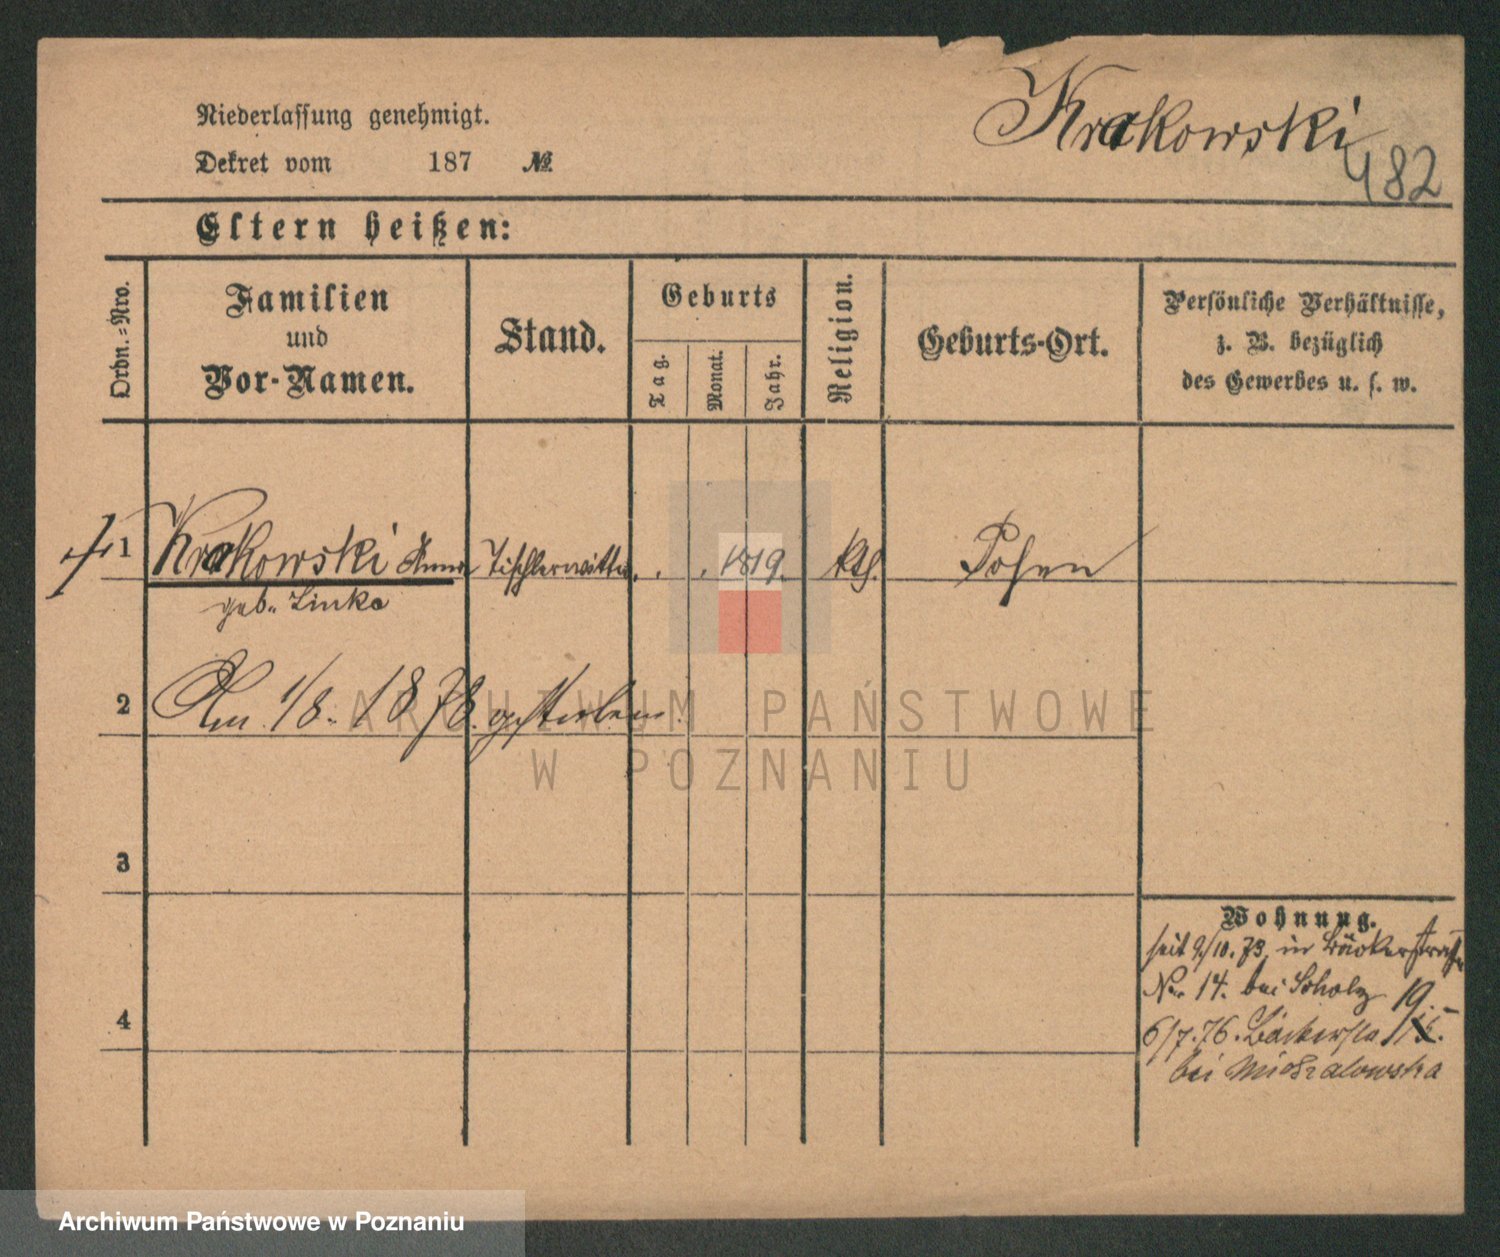 Niederlassung genehmigt.
Krakowski
Dekret vom 187 №
482
Eltern heißen:
Ordn.=Nro.
Familien
und
Vor-Namen.
Stand.
Geburts
Tag.
Monat.
Jahr.
Religion.
Geburts-Ort.
Persönliche Verhältnisse,
z. B. bezüglich
des Gewerbes u. s. w.
1 Krakowski Anna Tischlerwittw. 1819. kth. Posen
geb. Linke
2 Am 1/8. 1878. gestorben.
3
4
Wohnung.
seit 9/10.73. in Bäckerstraße
No. 14. bei Scholz 19.
6/7.76. Bäckerstr.
bei
ARCHIWUM PAŃSTWOWE
W POZNANIU
Archiwum Państwowe w Poznaniu